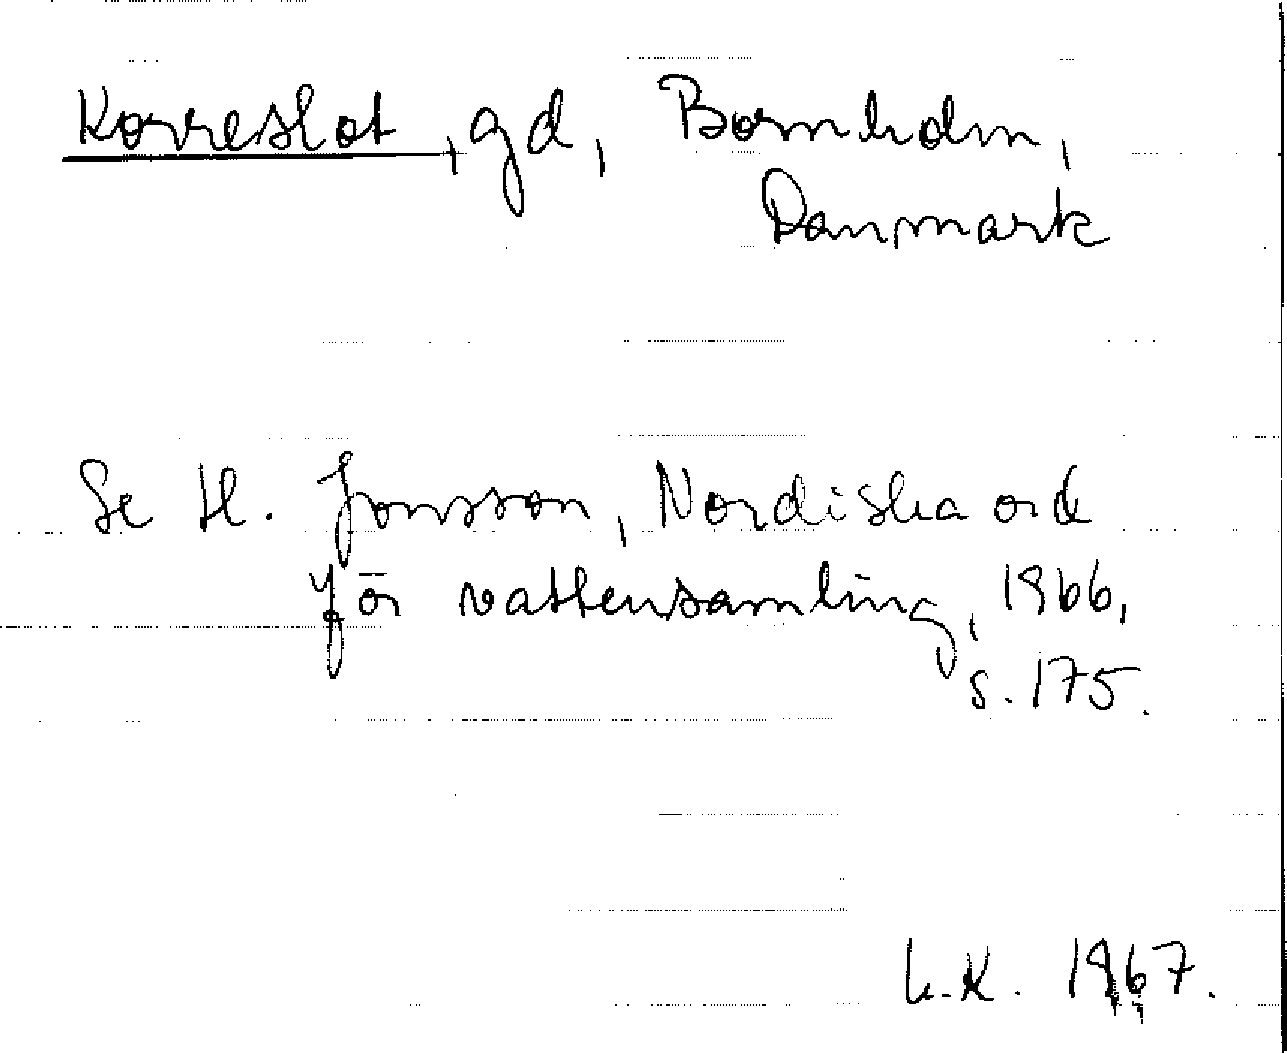 Korreslot, gd, Bornholm,
Danmark
Se H. Jonsson, Nordiska ord
för vattensamling, 1966,
s. 175.
L.K. 1967.